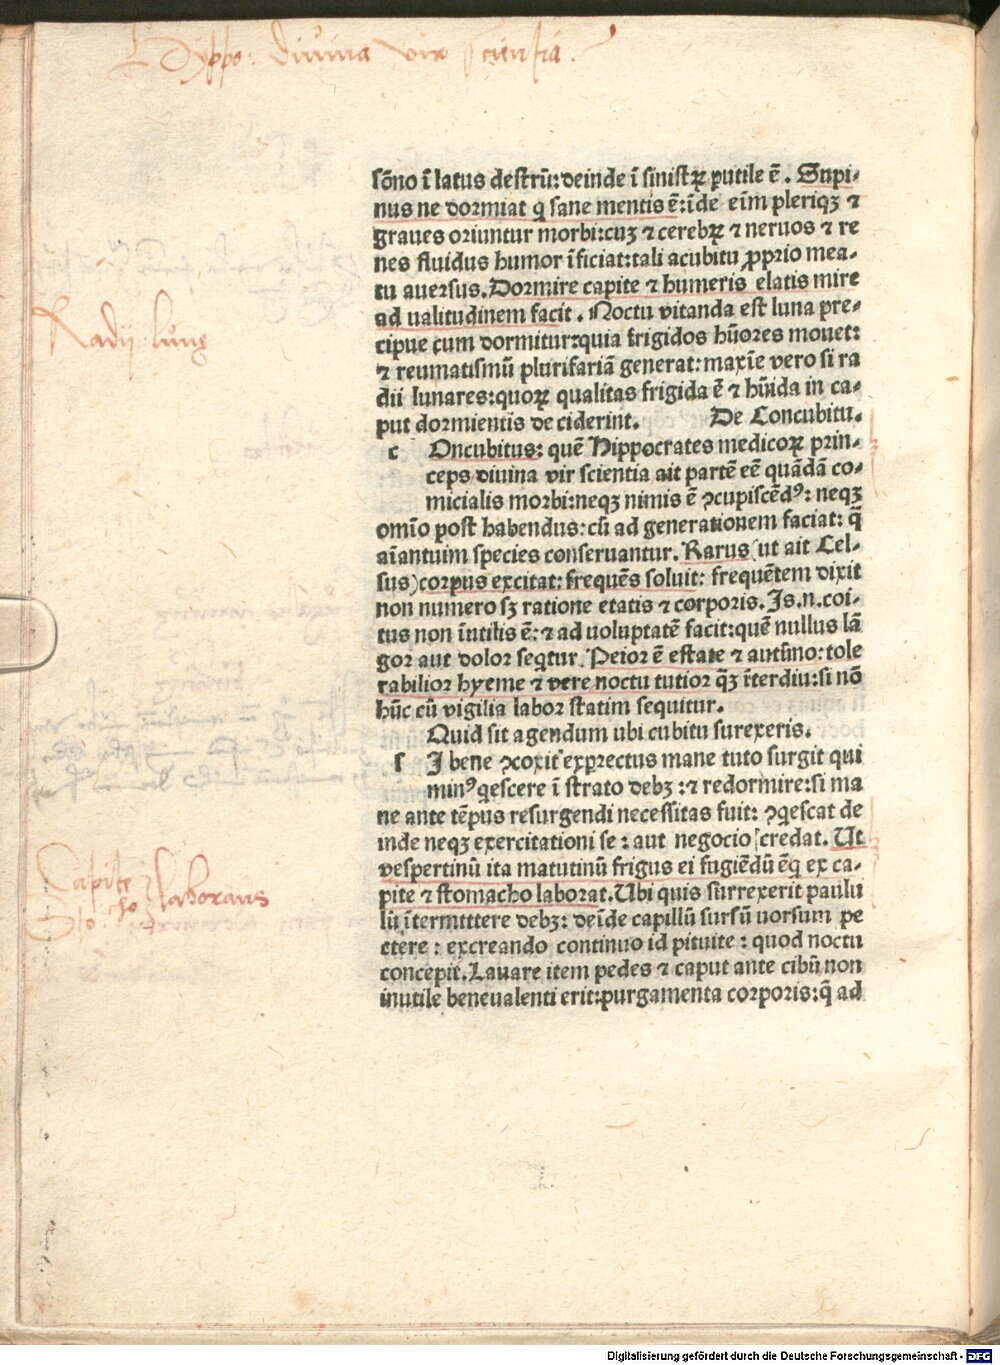 Hyppo: diuina vir scientia.
sōno ī latus destrū: deinde ī sinistꝝ ꝑutile ē. Supi-
nus ne dormiat q̇ sane mentis ē: īde eīm pleriqꝫ ⁊
graues oriuntur morbi: cuꝫ ⁊ cerebꝝ ⁊ neruos ⁊ re
nes fluidus humor īficiat: tali acubitu ꝓprio mea-
tu auersus. Dormire capite ⁊ humeris elatis mire
ad ualitudinem facit. Noctu vitanda est luna pre-
cipue cum dormitur: quia frigidos hūores mouet:
⁊ reumatismū plurifariā generat: maxīe vero si ra
dii lunares: quoꝝ qualitas frigida ē ⁊ hūida in ca-
put dormientis de ciderint. De Concubitu.
c Oncubitus: quē Hippocrates medicoꝝ prin-
ceps diuina vir scientia ait partē eē quādā co-
micialis morbi: neqꝫ nimis ē ꝯcupiscēdꝰ: neqꝫ
omīo post habendus: cū ad generationem faciat: q̄
aīantuim species conseruantur. Rarus (ut ait Cel-
sus) corpus excitat: frequēs soluit: frequētem dixit
non numero sꝫ ratione etatis ⁊ corporis. Is .n. coi-
tus non īutilis ē: ⁊ ad uoluptatē facit: quē nullus lā
gor aut dolor seqtur. Peior ē estate ⁊ autūno: tole
rabilior hyeme ⁊ vere noctu tutior q̄ꝫ īterdiu: si nō
hūc cū vigilia labor statim sequitur.
Quid sit agendum ubi cubitu surexeris.
s I bene ꝯcoxit exꝑrectus mane tuto surgit qui
minꝰ qescere ī strato debꝫ: ⁊ redormire: si ma
ne ante tēpus resurgendi necessitas fuit: ꝯqescat de
inde neqꝫ exercitationi se: aut negocio credat. Ut
vespertinū ita matutinū frigus ei fugiēdū ē q ex ca-
pite ⁊ stomacho laborat. Ubi quis surrexerit paulu
lū ītermittere debꝫ: deīde capillū sursū uorsum pe
ctere: excreando continuo id pituite: quod noctu
concepit. Lauare item pedes ⁊ caput ante cibū non
inutile beneualenti erit: purgamenta corporis: q̄ ad
Radij lunę
Capite
Sto cho laborans
Digitalisierung gefördert durch die Deutsche Forschungsgemeinschaft - DFG